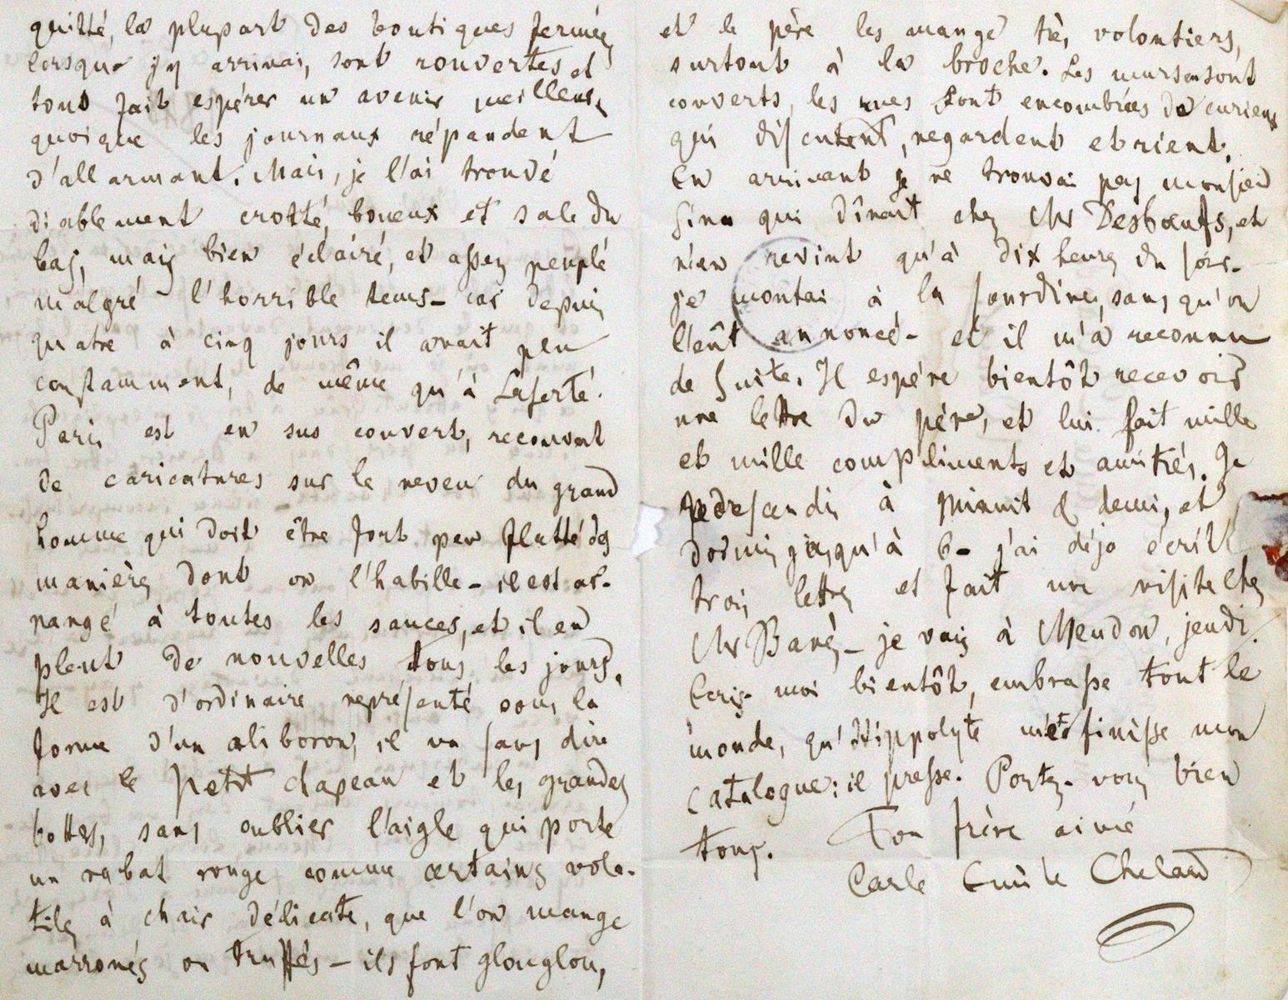 quitté, la plupart des boutiques fermées
lorsque j'y arrivai, sont rouvertes et
tout fait espérer un avenir meilleur,
quoique les journaux répandent
d'allarmant. Mais, je l'ai trouvé
diablement crotté, boueux et sale du
bas, mais bien éclairé, et assez peuplé
malgré l'horrible tems - car depuis
quatre à cinq jours il avait plu
constamment, de même qu'à Laferté.
Paris est en sus couvert, recouvert
de caricatures sur le neveu du grand
homme qui doit être fort peu flatté des
manières dont on l'habille - il est ar-
rangé à toutes les sauces, et il en
pleut de nouvelles tous les jours.
Il est d'ordinaire représenté sous la
forme d'un aliboron, il va sans dire
avec le petit chapeau et les grandes
bottes, sans oublier l'aigle qui porte
un rabat rouge comme certains vola-
tiles à chair délicate, que l'on mange
marronés ou truffés - ils font glouglou,
et le père les mange très volontiers,
surtout à la broche. Les murs en sont
couverts, les rues sont encombrées de curieux
qui discutent, regardent et rient.
En arrivant je ne trouvai pas monsieur
qui dînait chez Mr Desboeufs, et
n'en revint qu'à dix heures du soir -
je montai à la sourdine, sans qu'on
l'eût annoncé - et il m'a reconnu
de suite. Il espère bientôt recevoir
une lettre du père, et lui fait mille
et mille compliments et amitiés. Je
redescendis à minuit & demi, et
dormis jusqu'à 6 - j'ai déjà écrit
trois lettres et fait une visite chez
Mr - je vais à Meudon, jeudi.
Ecris-moi bientôt, embrasse tout le
monde, qu'Hippolyte finisse mon
catalogue: il presse. Portez-vous bien
tous. Ton frère aimé
Carle Emile Chelard